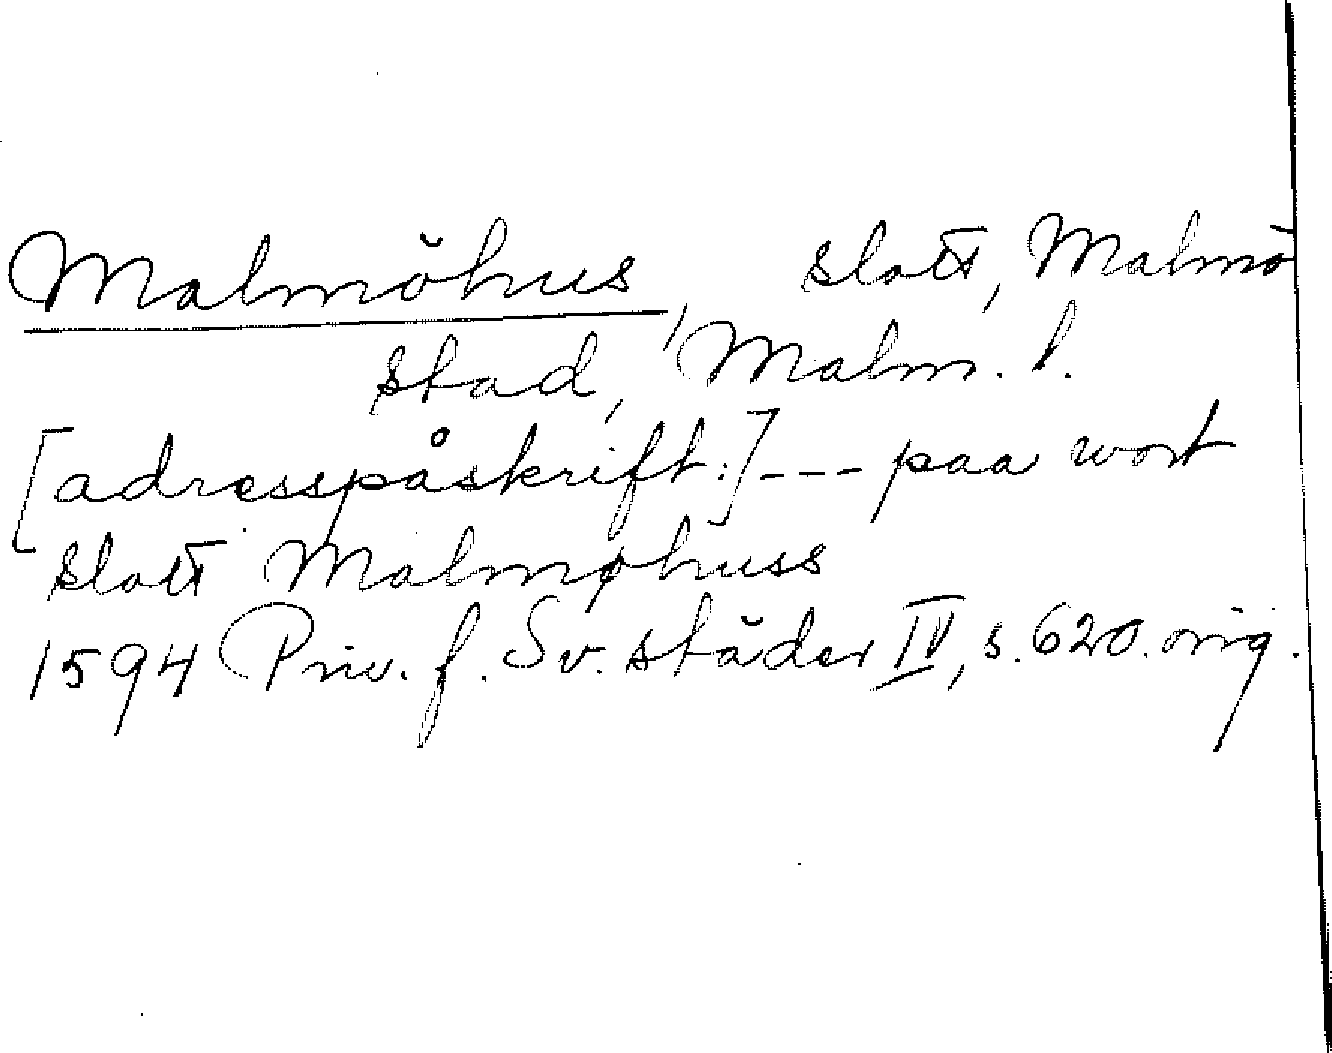 Malmöhus, slott, Malmö
stad, Malm. l.
[adresspåskrift:]--- paa wort
slott Malmøhuss
1594 Priv. f. Sv. städer IV, s. 620. orig.